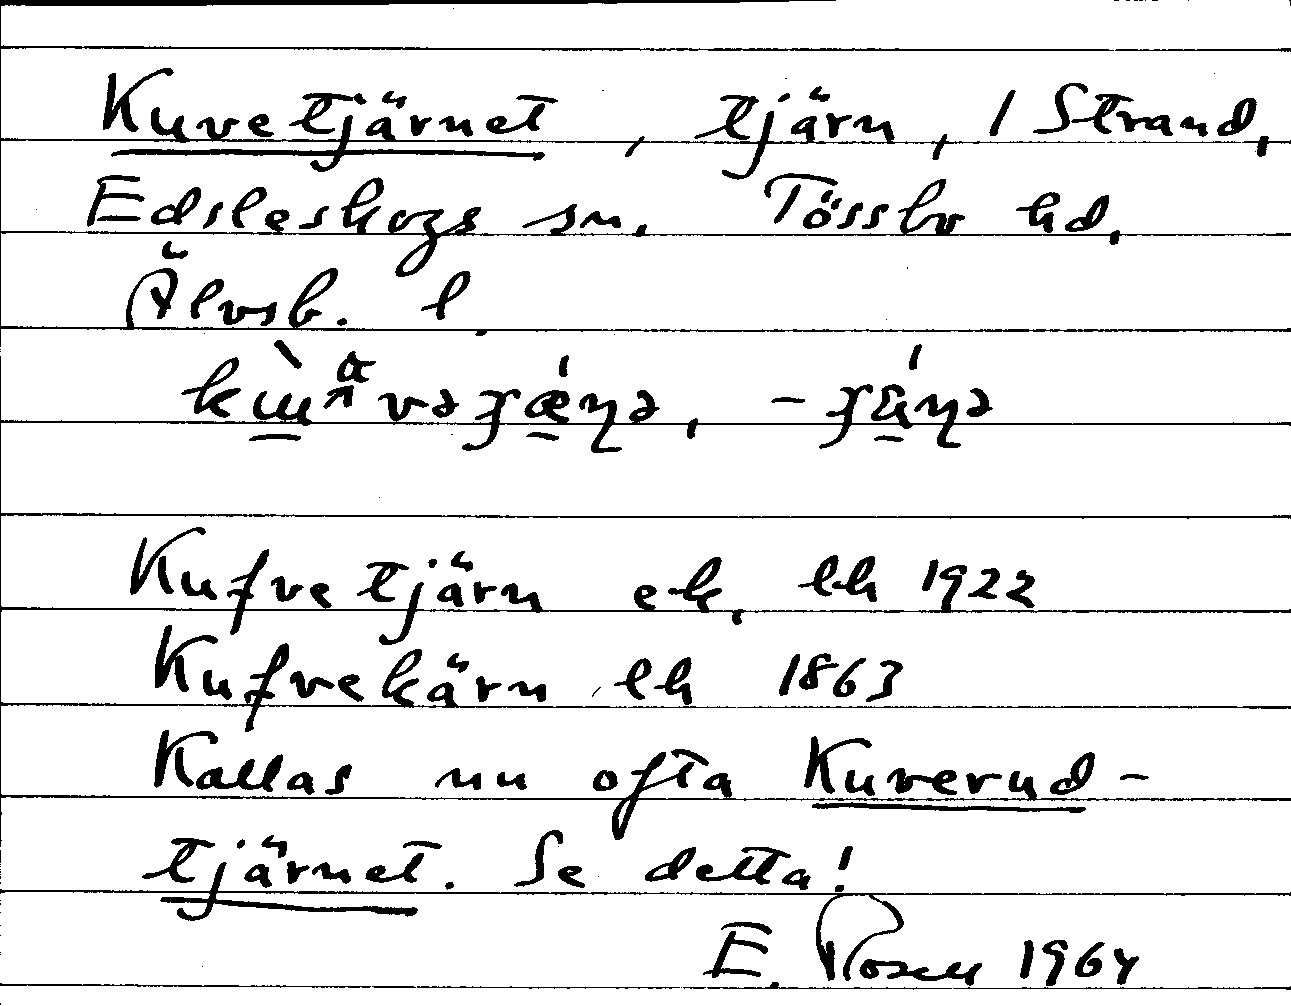 Kuvetjärnet, tjärn, / Strand,
Edsleskogs sn. Tössbo hd.
Älvsb. l.
Kufvetjärn ek. lh 1922
Kufvekärn lh 1863
Kallas nu ofta Kuverud-
tjärnet. Se detta!
E. Rosen 1964